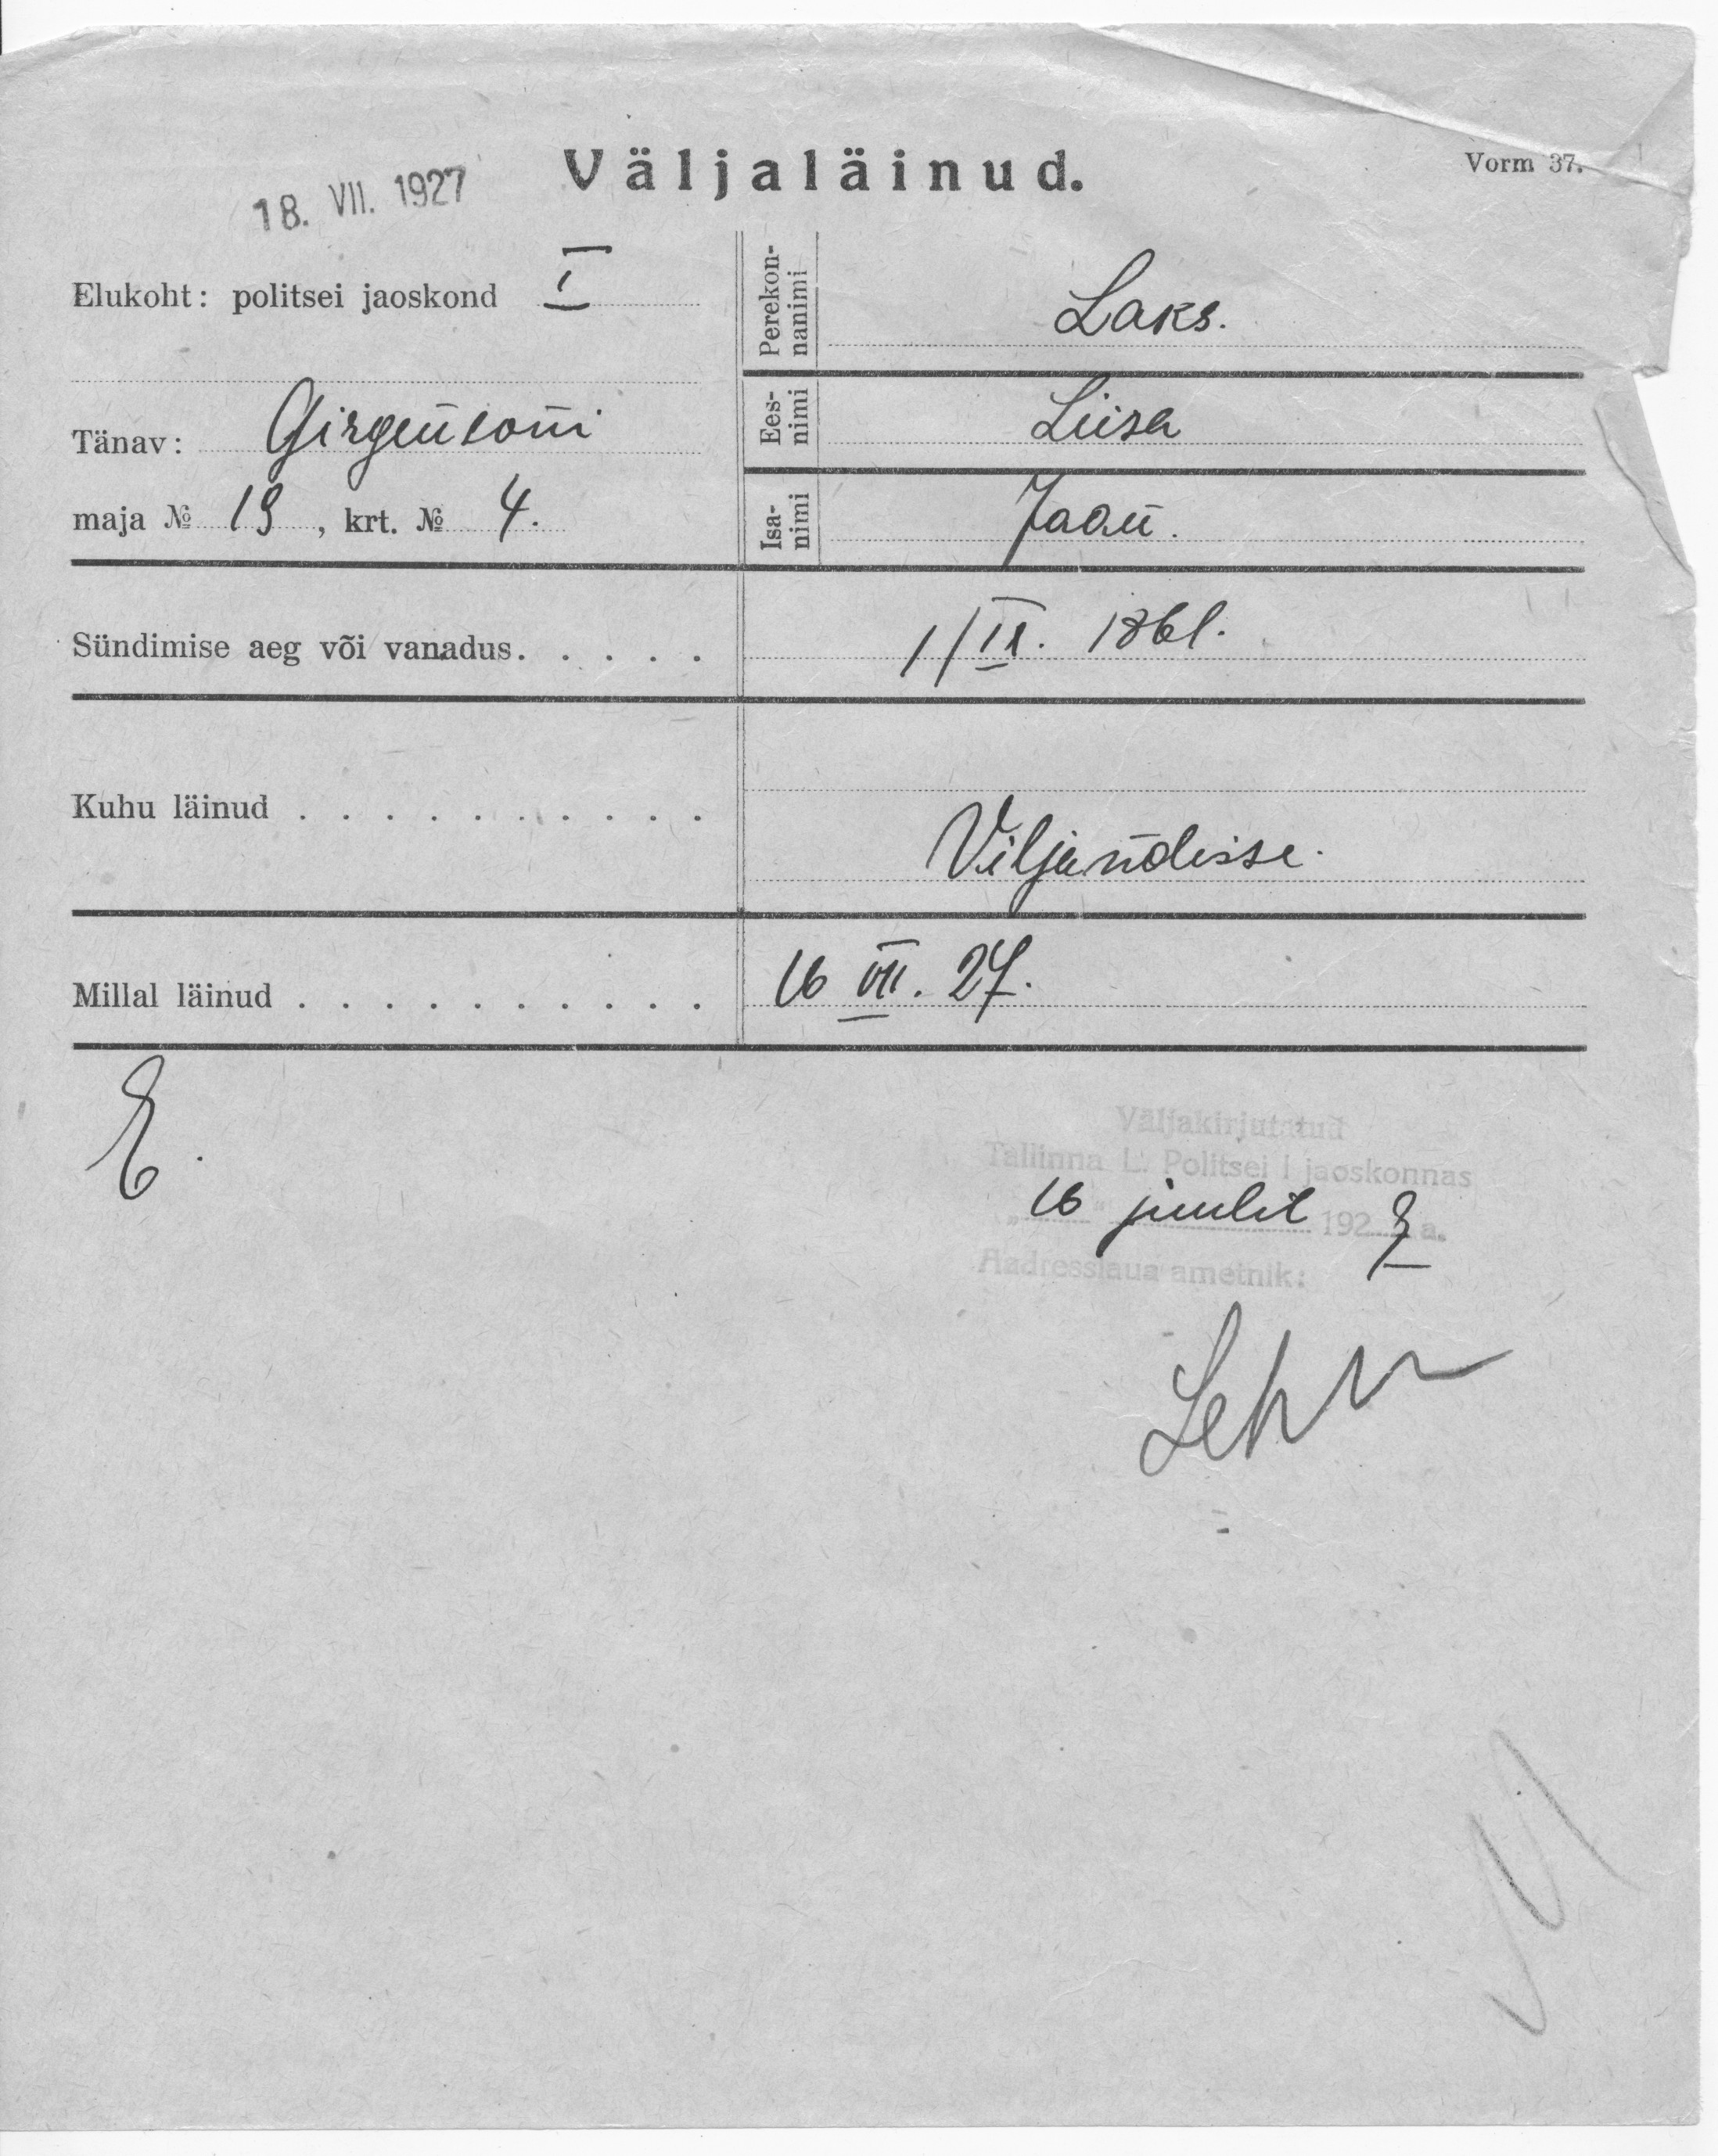 18. VII. 1927
Väljaläinud.
Vorm 37.
Elukoht: politsei jaoskond I
Tänav: Girgensoni
maja № 19, krt. № 4.
Perekon-
nanimi
Laks.
Ees-
nimi
Liisa
Isa-
nimi
Jaan.
Sündimise aeg või vanadus. . . . .
1/IX. 1861.
Kuhu läinud . . . . . . . . . .
Viljandisse.
Millal läinud . . . . . . . . . .
16 VII. 27.
E.
Väljakirjutatud
Tallinna L. Politsei I jaoskonnas
„16“ juulil 1927 a.
Aadresslaua ametnik: